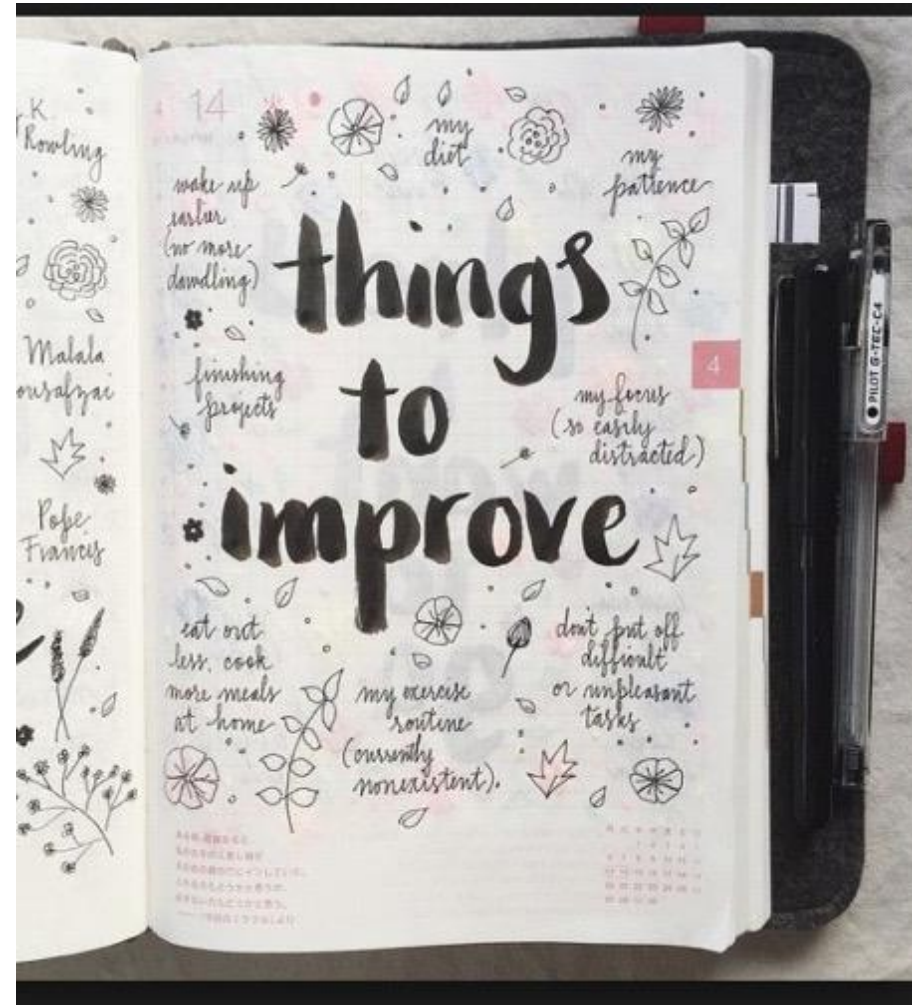 K.
Rowling
Malala
Pope
Francis
14 火
my
diet
my
patience
wake up
earlier
(no more
dawdling)
things
to
improve
finishing
projects
4
my focus
(so easily
distracted)
eat out
less, cook
more meals
at home
my exercise
routine
(currently
nonexistent).
don't put off
difficult
or unpleasant
tasks
PILOT G-TEC-C4